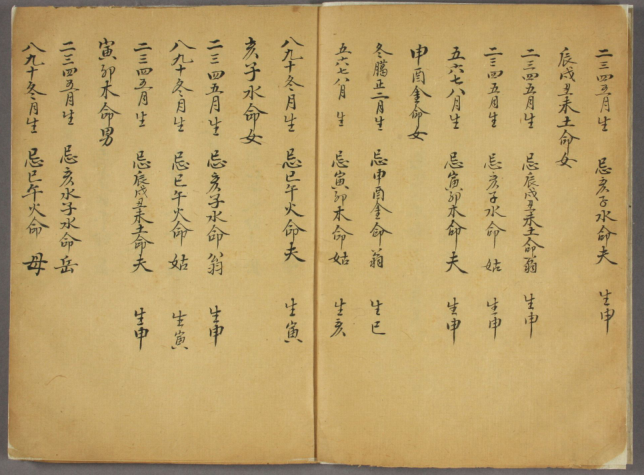 二三四五月生 忌亥子水命夫 生申
辰戌丑未土命女
二三四五月生 忌辰戌丑未土命翁 生申
二三四五月生 忌亥子水命姑 生申
五六七八月生 忌寅卯木命夫 生申
申酉金命女
冬臘正二月生 忌申酉金命翁 生巳
五六七八月生 忌寅卯木命姑 生亥
八九十冬月生 忌巳午火命夫 生寅
亥子水命女
二三四五月生 忌亥子水命翁 生申
八九十冬月生 忌巳午火命姑 生寅
二三四五月生 忌辰戌丑未土命夫 生申
寅卯木命男
二三四五月生 忌亥水子水命岳
八九十冬月生 忌巳午火命母